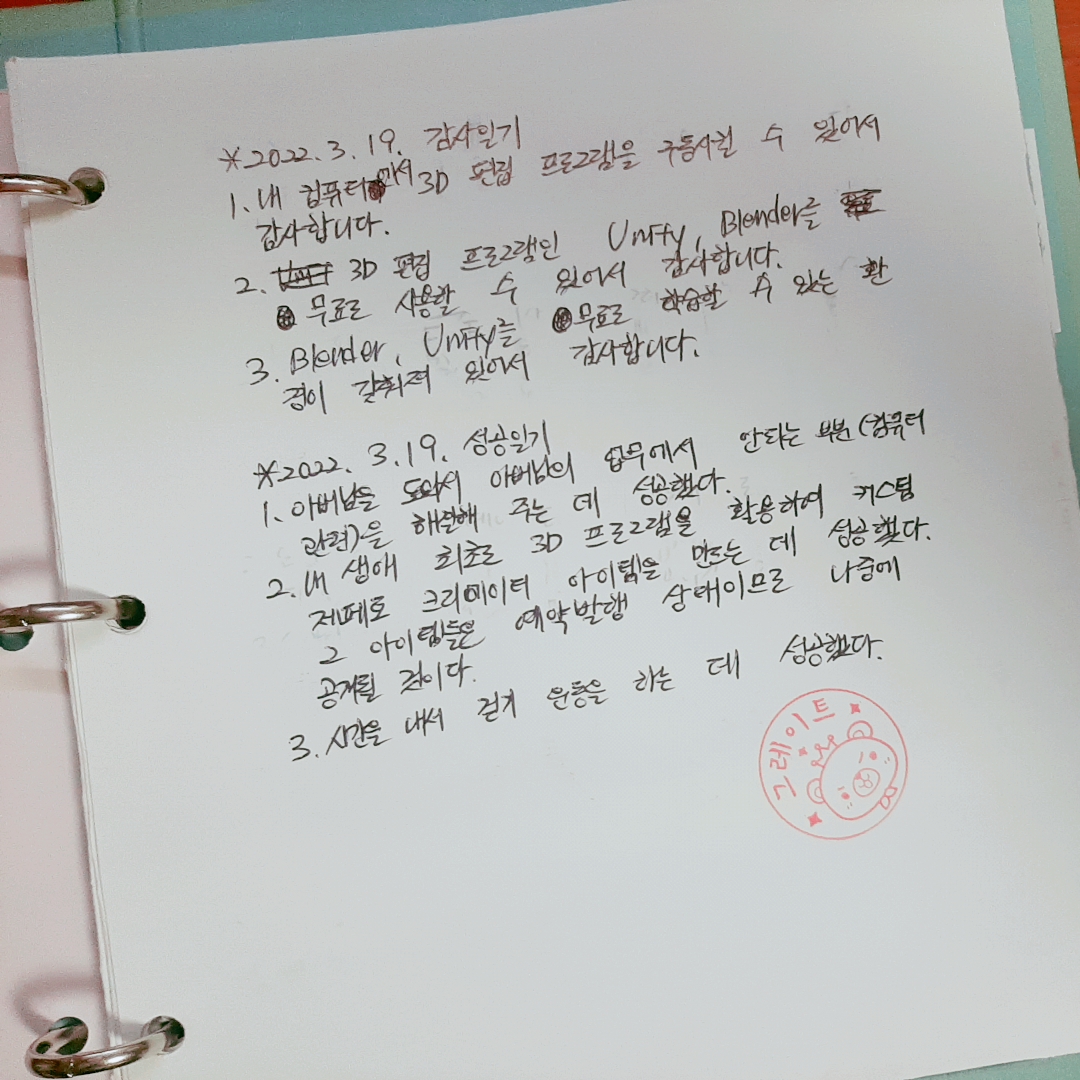 *2022.3.19. 감사일기
1. 내 컴퓨터에서 3D 편집 프로그램을 구동시킬 수 있어서
감사합니다.
2. 3D 편집 프로그램인 Unity, Blender를
무료로 사용할 수 있어서 감사합니다.
3. Blender, Unity를 무료로 학습할 수 있는 환
경이 갖춰져 있어서 감사합니다.
*2022. 3.19. 성공일기
1. 아버님을 도와서 아버님의 업무에서 안되는 부분(컴퓨터
관련)을 해결해 주는 데 성공했다.
2. 내 생애 최초로 3D 프로그램을 활용하여 커스텀
제페토 크리에이터 아이템을 만드는 데 성공했다.
그 아이템들은 예약발행 상태이므로 나중에
공개될 것이다.
3. 시간을 내서 걷기 운동을 하는 데 성공했다.
그레이트